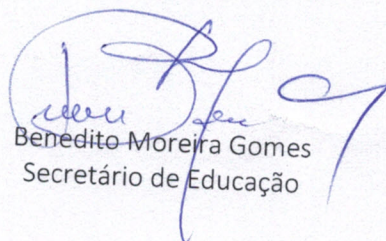 Benedito Moreira Gomes
Secretário de Educação